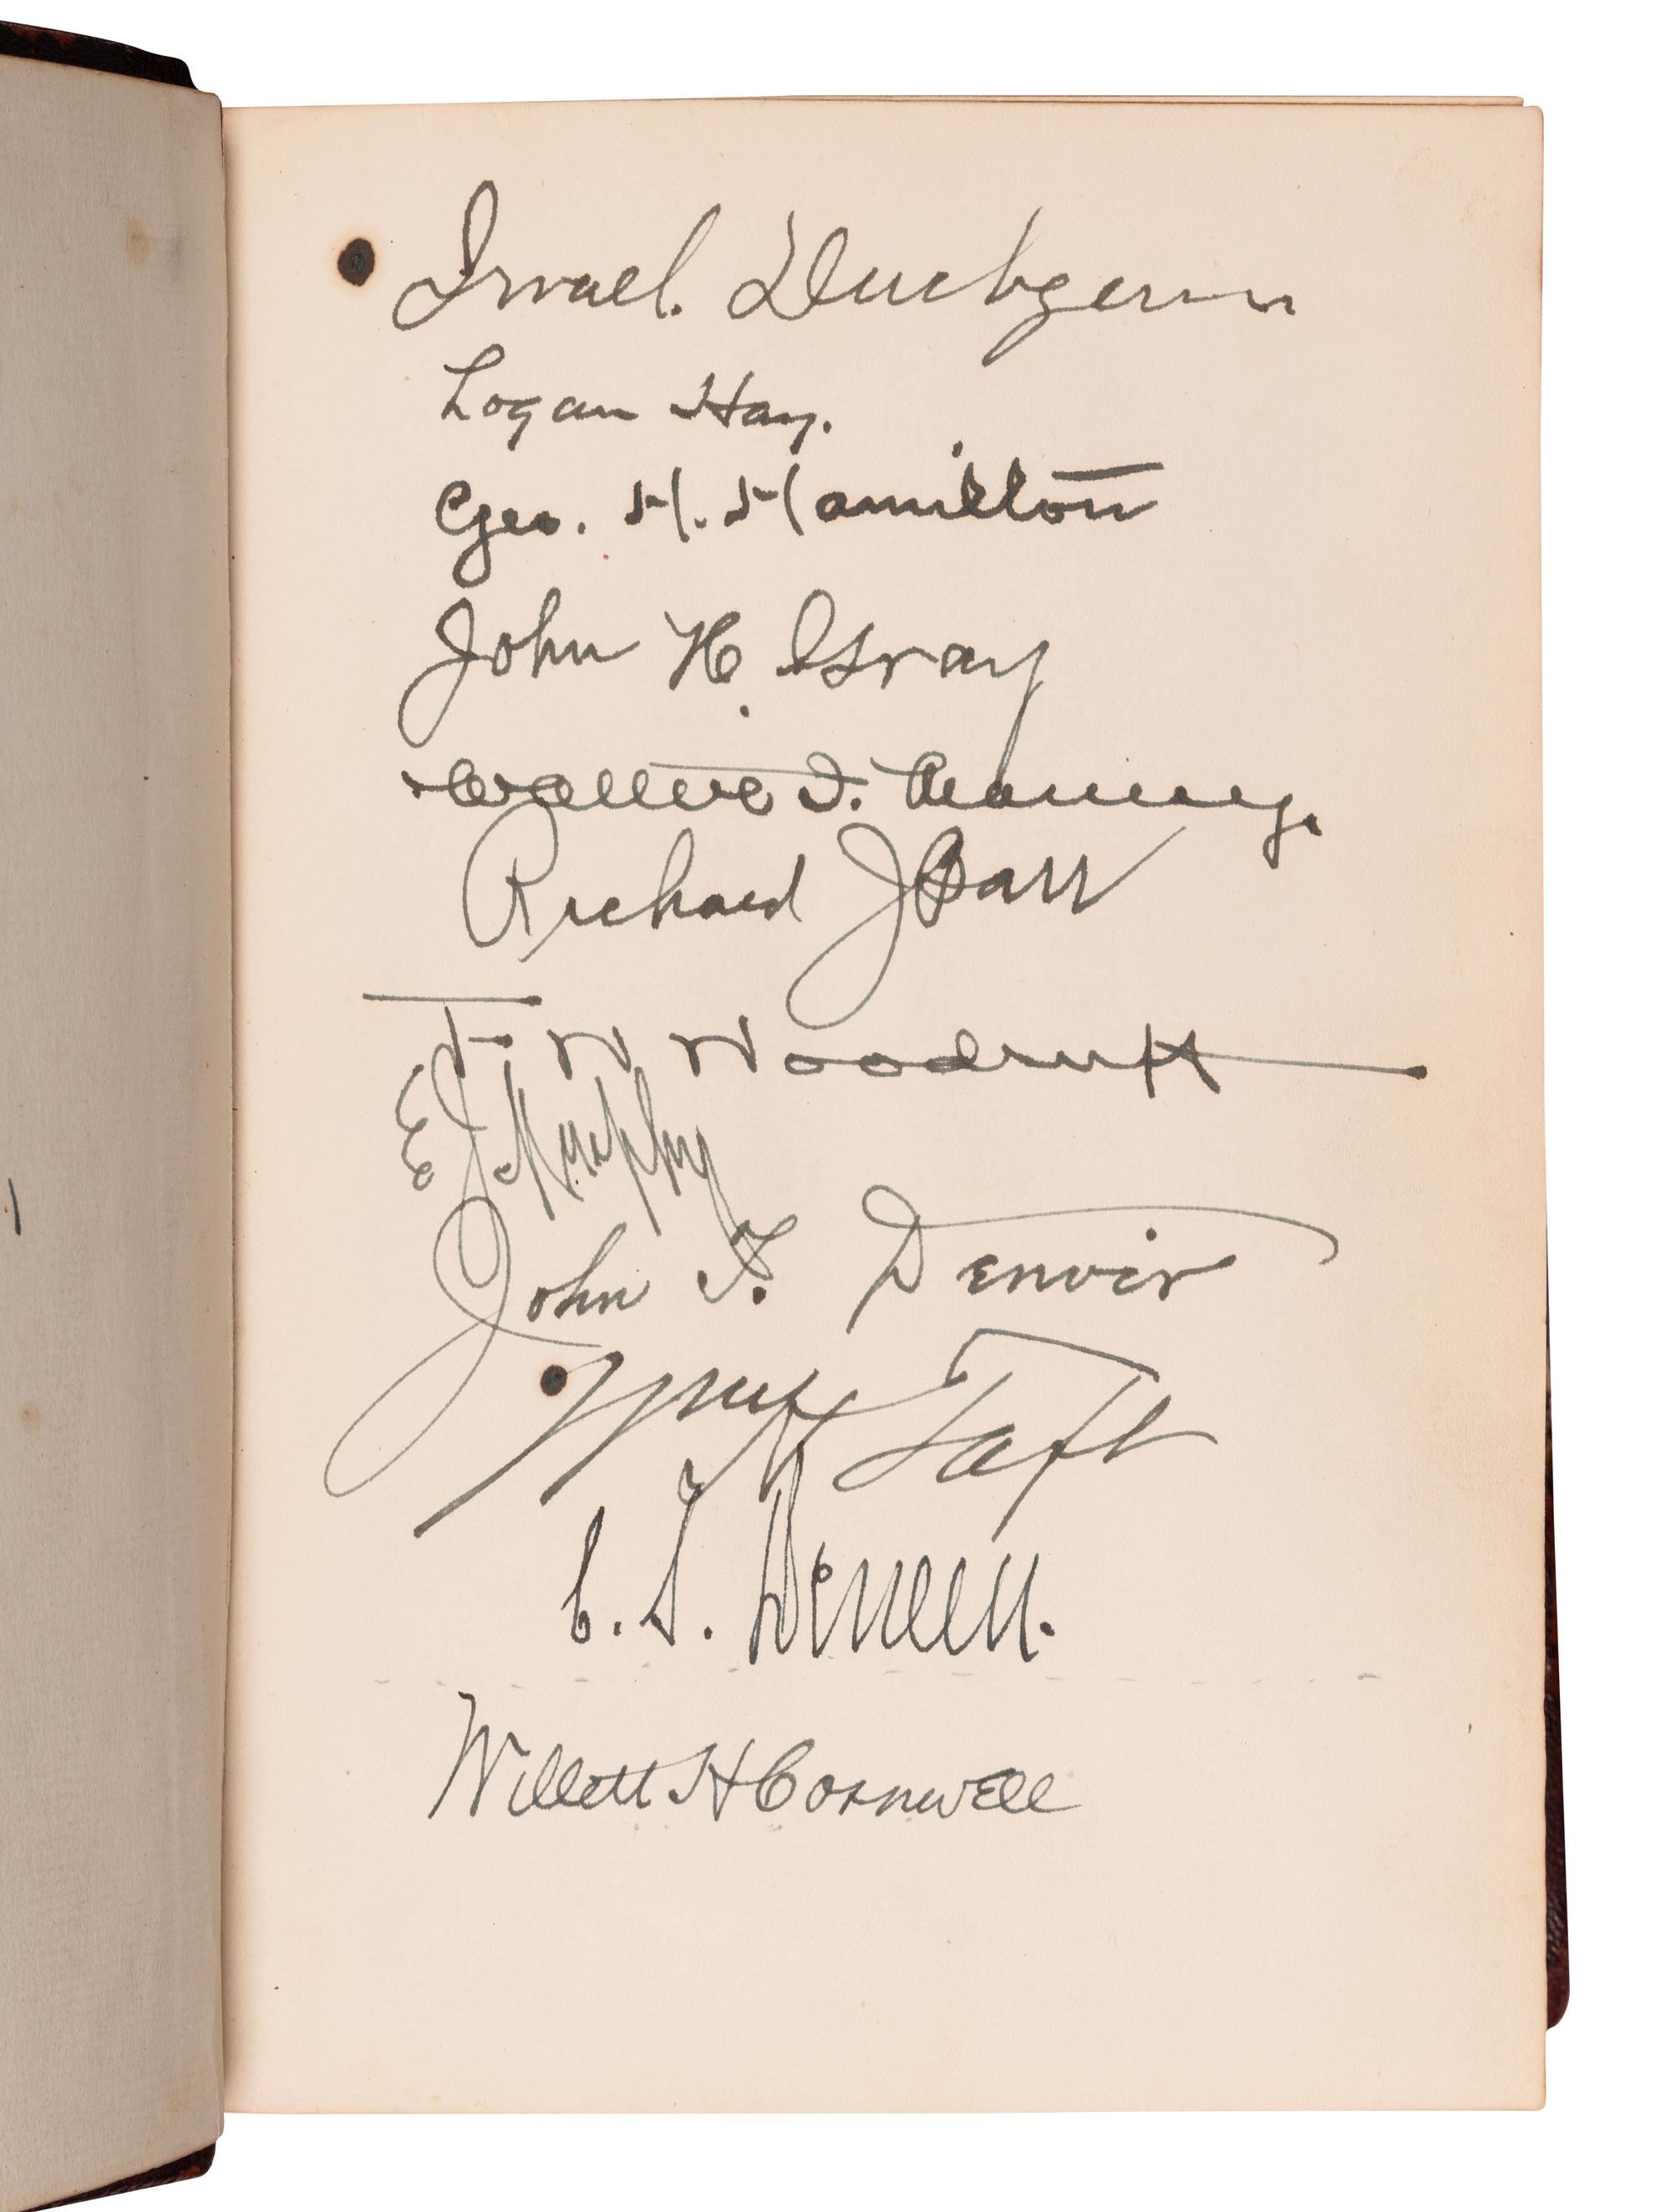 Israel Dudgeon
Logan Hay.
Geo. H. Hamilton
John H. Gray
Walter I. Manny.
Richard J Barr
F W Woodruff
E J Murphy
John T. Denvir
Wm H Taft
C. S. Deneen.
Willett H Cornwell